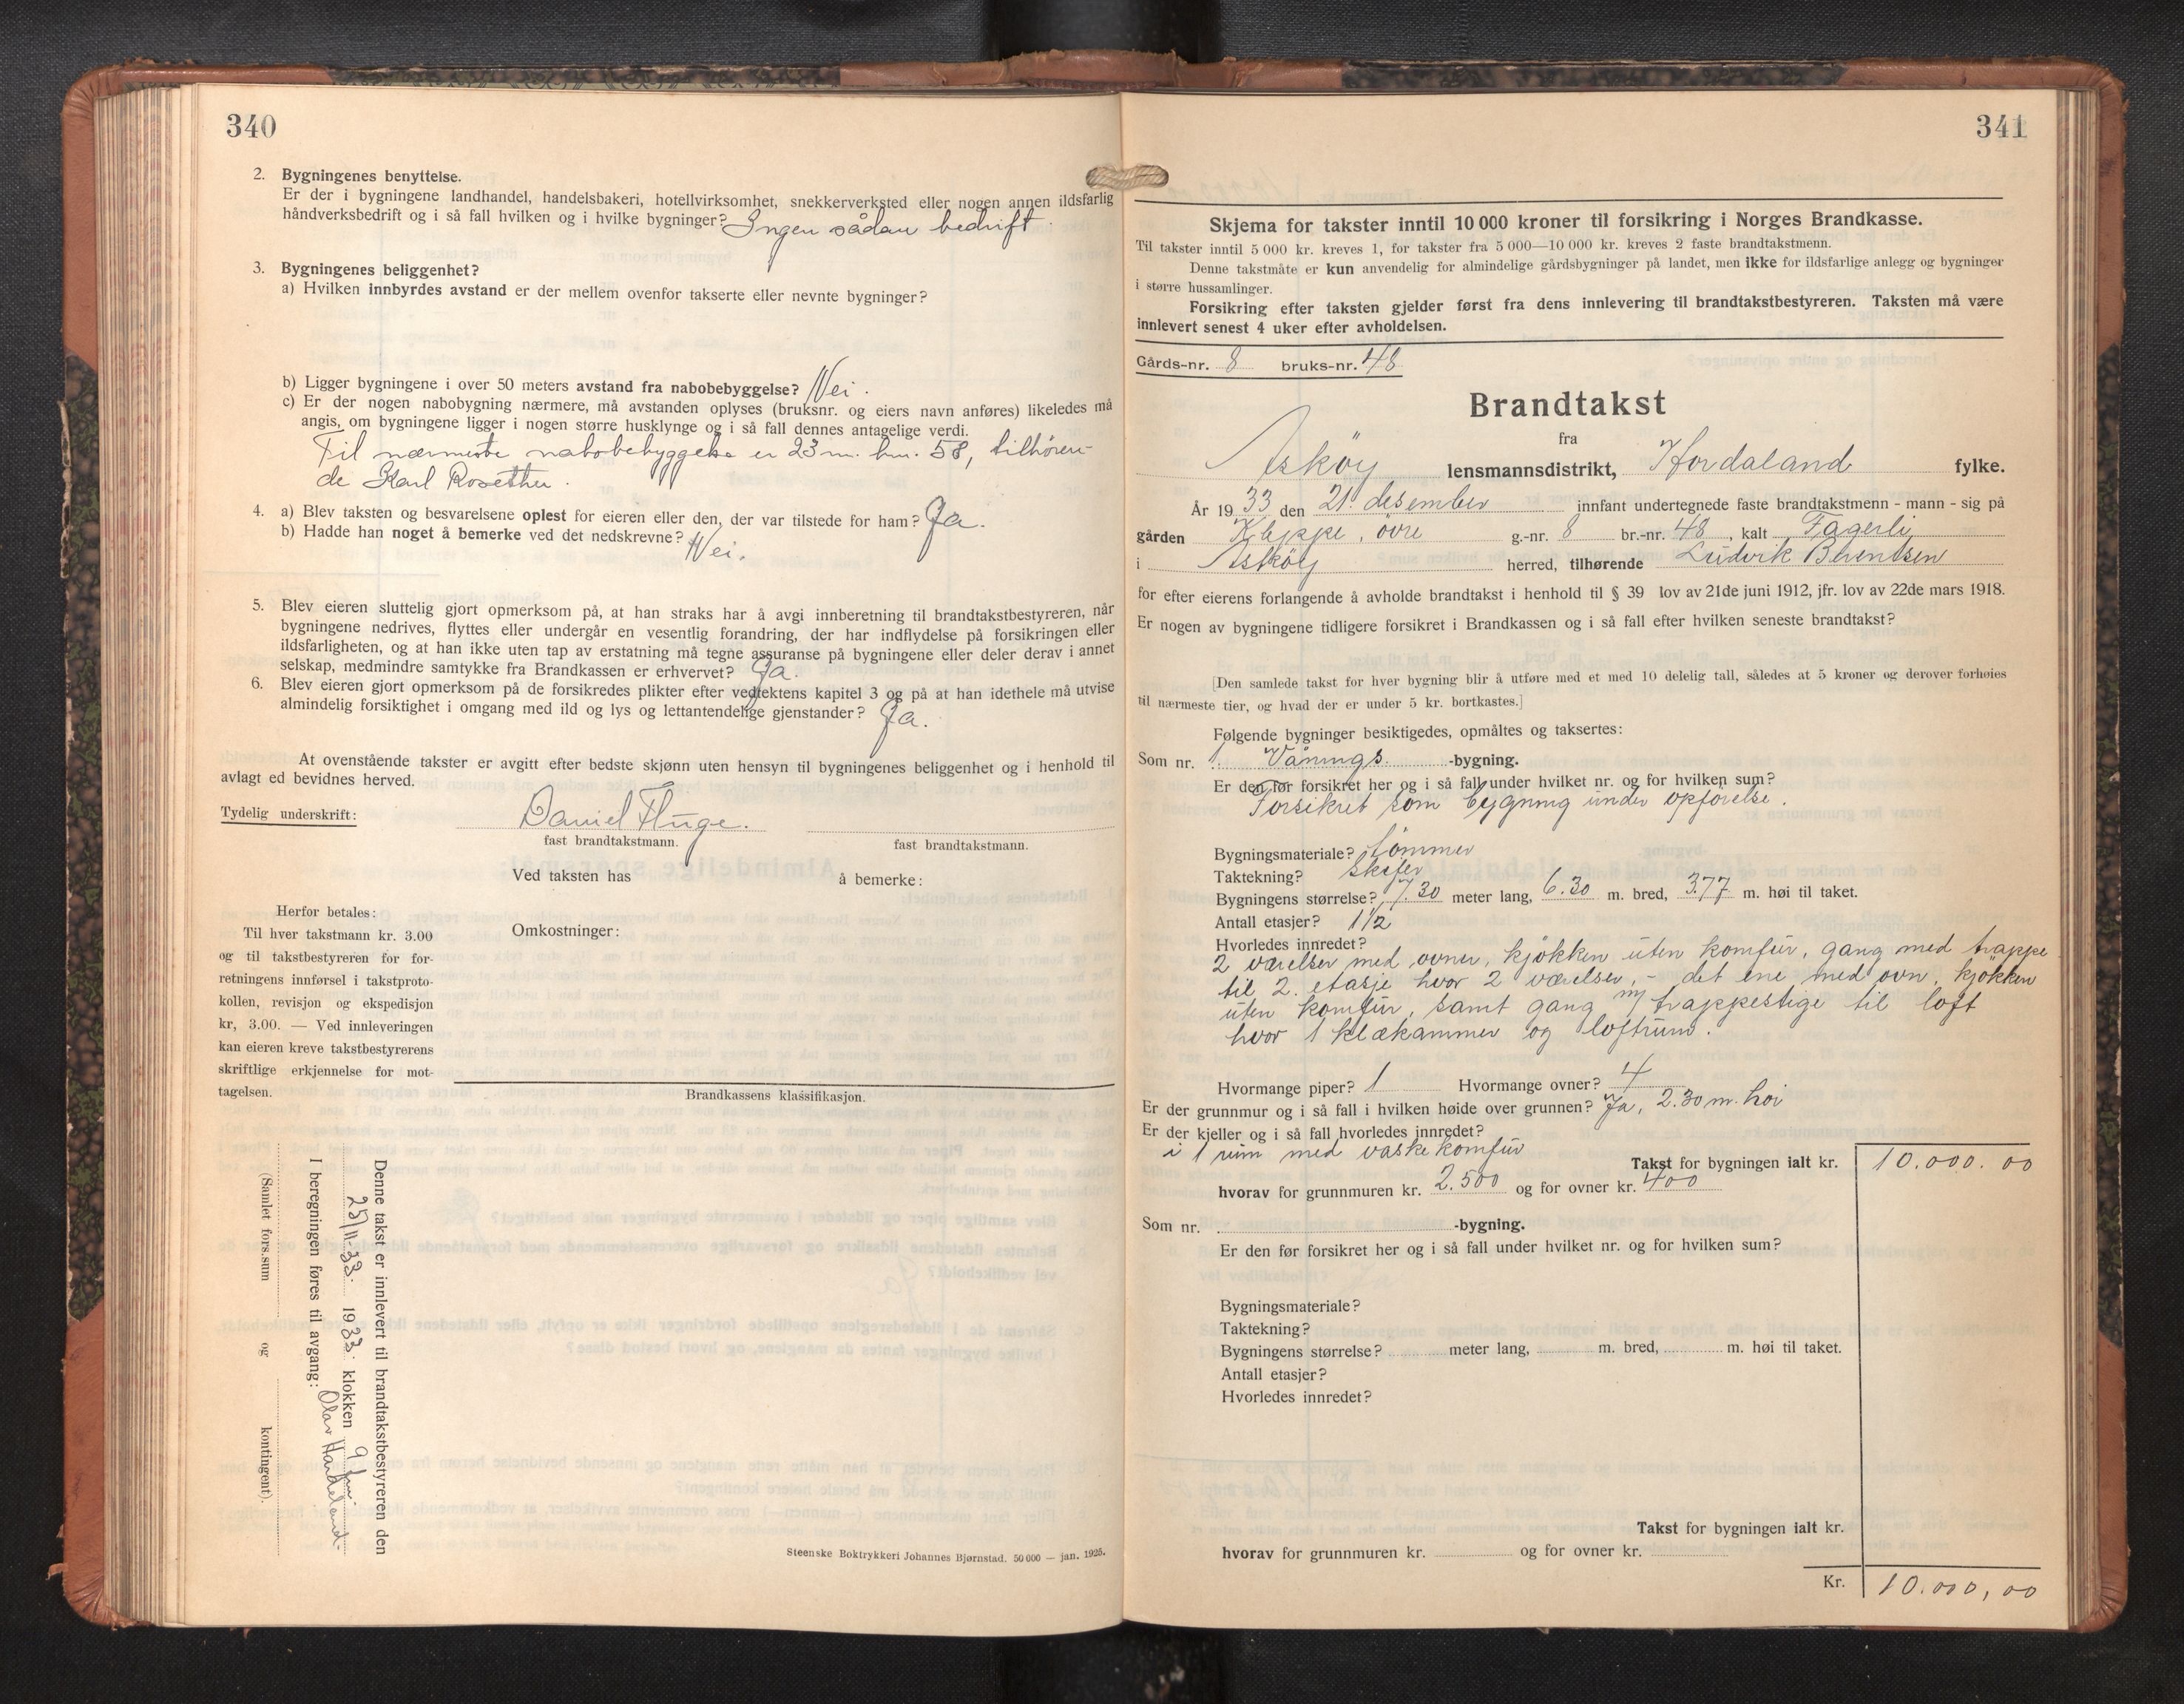 340
2. Bygningenes benyttelse.
Er der i bygningene landhandel, handelsbakeri, hotellvirksomhet, snekkerverksted eller nogen annen ildsfarlig
håndverksbedrift og i så fall hvilken og i hvilke bygninger? Ingen sådan bedrift.
3. Bygningenes beliggenhet?
a) Hvilken innbyrdes avstand er der mellem ovenfor takserte eller nevnte bygninger?
b) Ligger bygningene i over 50 meters avstand fra nabobebyggelse? Nei.
c) Er der nogen nabobygning nærmere, må avstanden oplyses (bruksnr. og eiers navn anføres) likeledes må
angis, om bygningene ligger i nogen større husklynge og i så fall dennes antagelige verdi.
Til nærmeste nabobebyggelse er 23 m. bnr. 58, tilhøren-
de Karl Rosether.
4. a) Blev taksten og besvarelsene oplest for eieren eller den, der var tilstede for ham? Ja.
b) Hadde han noget å bemerke ved det nedskrevne? Nei.
5. Blev eieren sluttelig gjort opmerksom på, at han straks har å avgi innberetning til brandtakstbestyreren, når
bygningene nedrives, flyttes eller undergår en vesentlig forandring, der har indflydelse på forsikringen eller
ildsfarligheten, og at han ikke uten tap av erstatning må tegne assuranse på bygningene eller deler derav i annet
selskap, medmindre samtykke fra Brandkassen er erhvervet? Ja.
6. Blev eieren gjort opmerksom på de forsikredes plikter efter vedtektens kapitel 3 og på at han idethele må utvise
almindelig forsiktighet i omgang med ild og lys og lettantendelige gjenstander? Ja.
At ovenstående takster er avgitt efter bedste skjønn uten hensyn til bygningenes beliggenhet og i henhold til
avlagt ed bevidnes herved.
Tydelig underskrift: Daniel Fluge.
fast brandtakstmann. fast brandtakstmann.
Ved taksten has å bemerke:
Herfor betales:
Til hver takstmann kr. 3.00
og til takstbestyreren for for-
retningens innførsel i takstproto-
kollen, revisjon og ekspedisjon
kr, 3.00. — Ved innleveringen
kan eieren kreve takstbestyrerens
skriftlige erkjennelse for mot-
tagelsen.
Omkostninger:
Brandkassens klassifikasjon.
Denne takst er innlevert til brandtakstbestyreren den
23/11-33. 1933. klokken 9 fm.
I beregningen føres til avgang: Olav Handeland.
(Samlet fors.sum og kontingent).
Steenske Boktrykkeri Johannes Bjørnstad. 50 000 — jan. 1925.
341
Skjema for takster inntil 10 000 kroner til forsikring i Norges Brandkasse.
Til takster inntil 5 000 kr. kreves 1, for takster fra 5 000—10 000 kr. kreves 2 faste brandtakstmenn.
Denne takstmåte er kun anvendelig for almindelige gårdsbygninger på landet, men ikke for ildsfarlige anlegg og bygninger
i større hussamlinger.
Forsikring efter taksten gjelder først fra dens innlevering til brandtakstbestyreren. Taksten må være
innlevert senest 4 uker efter avholdelsen.
Gårds-nr. 8 bruks-nr. 48
Brandtakst
fra
Askøy lensmannsdistrikt, Hordaland fylke.
År 1933 den 21. desember innfant undertegnede faste brandtakstmenn - mann - sig på
gården Kleppe, øvre g.-nr. 8 br.-nr. 48, kalt Fagerli
i Askøy herred, tilhørende Ludvik Berentsen
for efter eierens forlangende å avholde brandtakst i henhold til § 39 lov av 21de juni 1912, jfr. lov av 22de mars 1918.
Er nogen av bygningene tidligere forsikret i Brandkassen og i så fall efter hvilken seneste brandtakst?
[Den samlede takst for hver bygning blir å utføre med et med 10 delelig tall, således at 5 kroner og derover forhøies
til nærmeste tier, og hvad der er under 5 kr. bortkastes.]
Følgende bygninger besiktigedes, opmåltes og taksertes:
Som nr. 1. Vånings -bygning.
Er den før forsikret her og i så fall under hvilket nr. og for hvilken sum?
Forsikret som bygning under opførelse.
Bygningsmateriale? tømmer
Taktekning? skifer
Bygningens størrelse? 7.30 meter lang, 6.30 m. bred, 3.77 m. høi til taket.
Antall etasjer? 1 1/2
Hvorledes innredet?
2 værelser med ovner, kjøkken uten komfur, gang med trappe
til 2. etasje hvor 2 værelser, - det ene med ovn, kjøkken
uten komfur, samt gang m/ trappestige til loft
hvor 1 klækammer og loftrum.
Hvormange piper? 1 Hvormange ovner? 4
Er der grunnmur og i så fall i hvilken høide over grunnen? Ja, 2.30 m. høi
Er der kjeller og i så fall hvorledes innredet?
i 1 rum med vaskekomfur
Takst for bygningen ialt kr. 10.000.00
hvorav for grunnmuren kr. 2.500 og for ovner kr. 400
Som nr. -bygning.
Er den før forsikret her og i så fall under hvilket nr. og for hvilken sum?
Bygningsmateriale?
Taktekning?
Bygningens størrelse? meter lang, m. bred, m. høi til taket.
Antall etasjer?
Hvorledes innredet?
Takst for bygningen ialt kr.
hvorav for grunnmuren kr. og for ovner kr.
Kr. 10.000,00